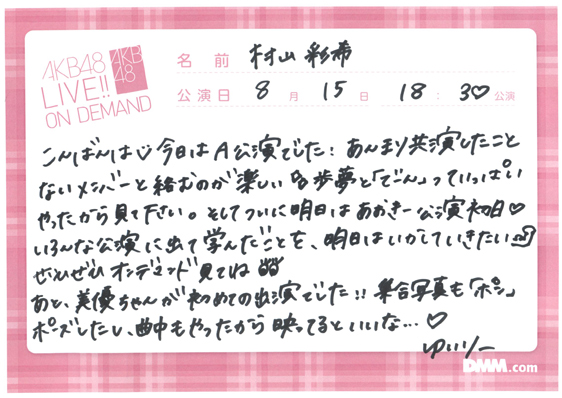 AKB48
LIVE!!
ON DEMAND
AKB
48
名前 村山彩希
公演日 8月15日 18:30公演
こんばんは 今日はA公演でした! あんまり共演したこと
ないメンバーと絡むのが楽しい 歩夢と「でごん」っていっぱい
やったから見て下さい。そしてついに明日はあおきー公演初日♡
いろんな公演に出て学んだことを、明日はいかしていきたい
ぜひぜひオンデマンド見てね
あと、美優ちゃんが初めての出演でした!! 集合写真も「ポン」
ポーズしたし、曲中もやったから映ってるといいな…♡
ゆいりー
DMM.com